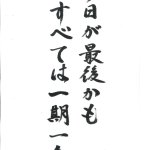 日が最後かも
すべては一期一